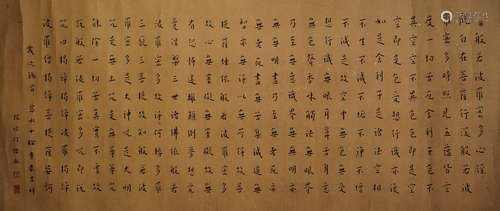 般若心經
觀自在菩薩行深般若波
羅蜜多時照見五蘊皆空
度一切苦厄舍利子色不
異空空不異色色即是空
空即是色受想行識亦復
如是舍利子是諸法空相
不生不滅不垢不淨不增
不減是故空中無色無受
想行識無眼耳鼻舌身意
無色聲香味觸法無眼界
乃至無意識界無無明亦
無無明盡乃至無老死亦
無老死盡無苦集滅道無
智亦無得以無所得故菩
提薩埵依般若波羅蜜多
故心無罣礙無罣礙故無
有恐怖遠離顛倒夢想究
竟涅槃三世諸佛依般若
波羅蜜多故得阿耨多羅
三藐三菩提故知般若波
羅蜜多是大神咒是大明
咒是無上咒是無等等咒
能除一切苦真實不虛故
說般若波羅蜜多咒即說
咒曰揭諦揭諦波羅揭諦
波羅僧揭諦菩提薩婆訶